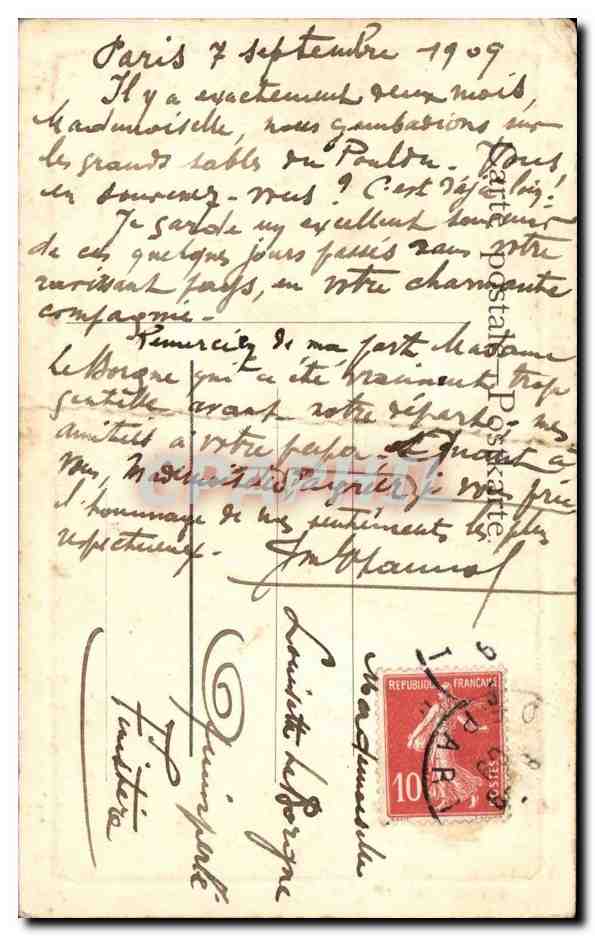 Paris 7 septembre 1909
Il y a exactement deux mois,
Mademoiselle, nous gambadions sur
les grands sables du Pouldu. Vous
en souvenez-vous? C'est déjà loin!
Je garde un excellent souvenir
de ces quelques jours passés dans votre
ravissant pays, en votre charmante
compagnie.
Remerciez de ma part Madame
Le Borgne qui a été vraiment trop
gentille avant notre départ mes
amitiés à votre papa. Et quant à
vous, Mademoiselle agréez je vous prie
l'hommage de mes sentiments les plus
respectueux.
Carte postale - Postkarte.
Mademoiselle
Louisette Le Borgne
Quimperlé
Finistère
REPUBLIQUE FRANCAISE
10
POSTES
PARI
CPARAMA